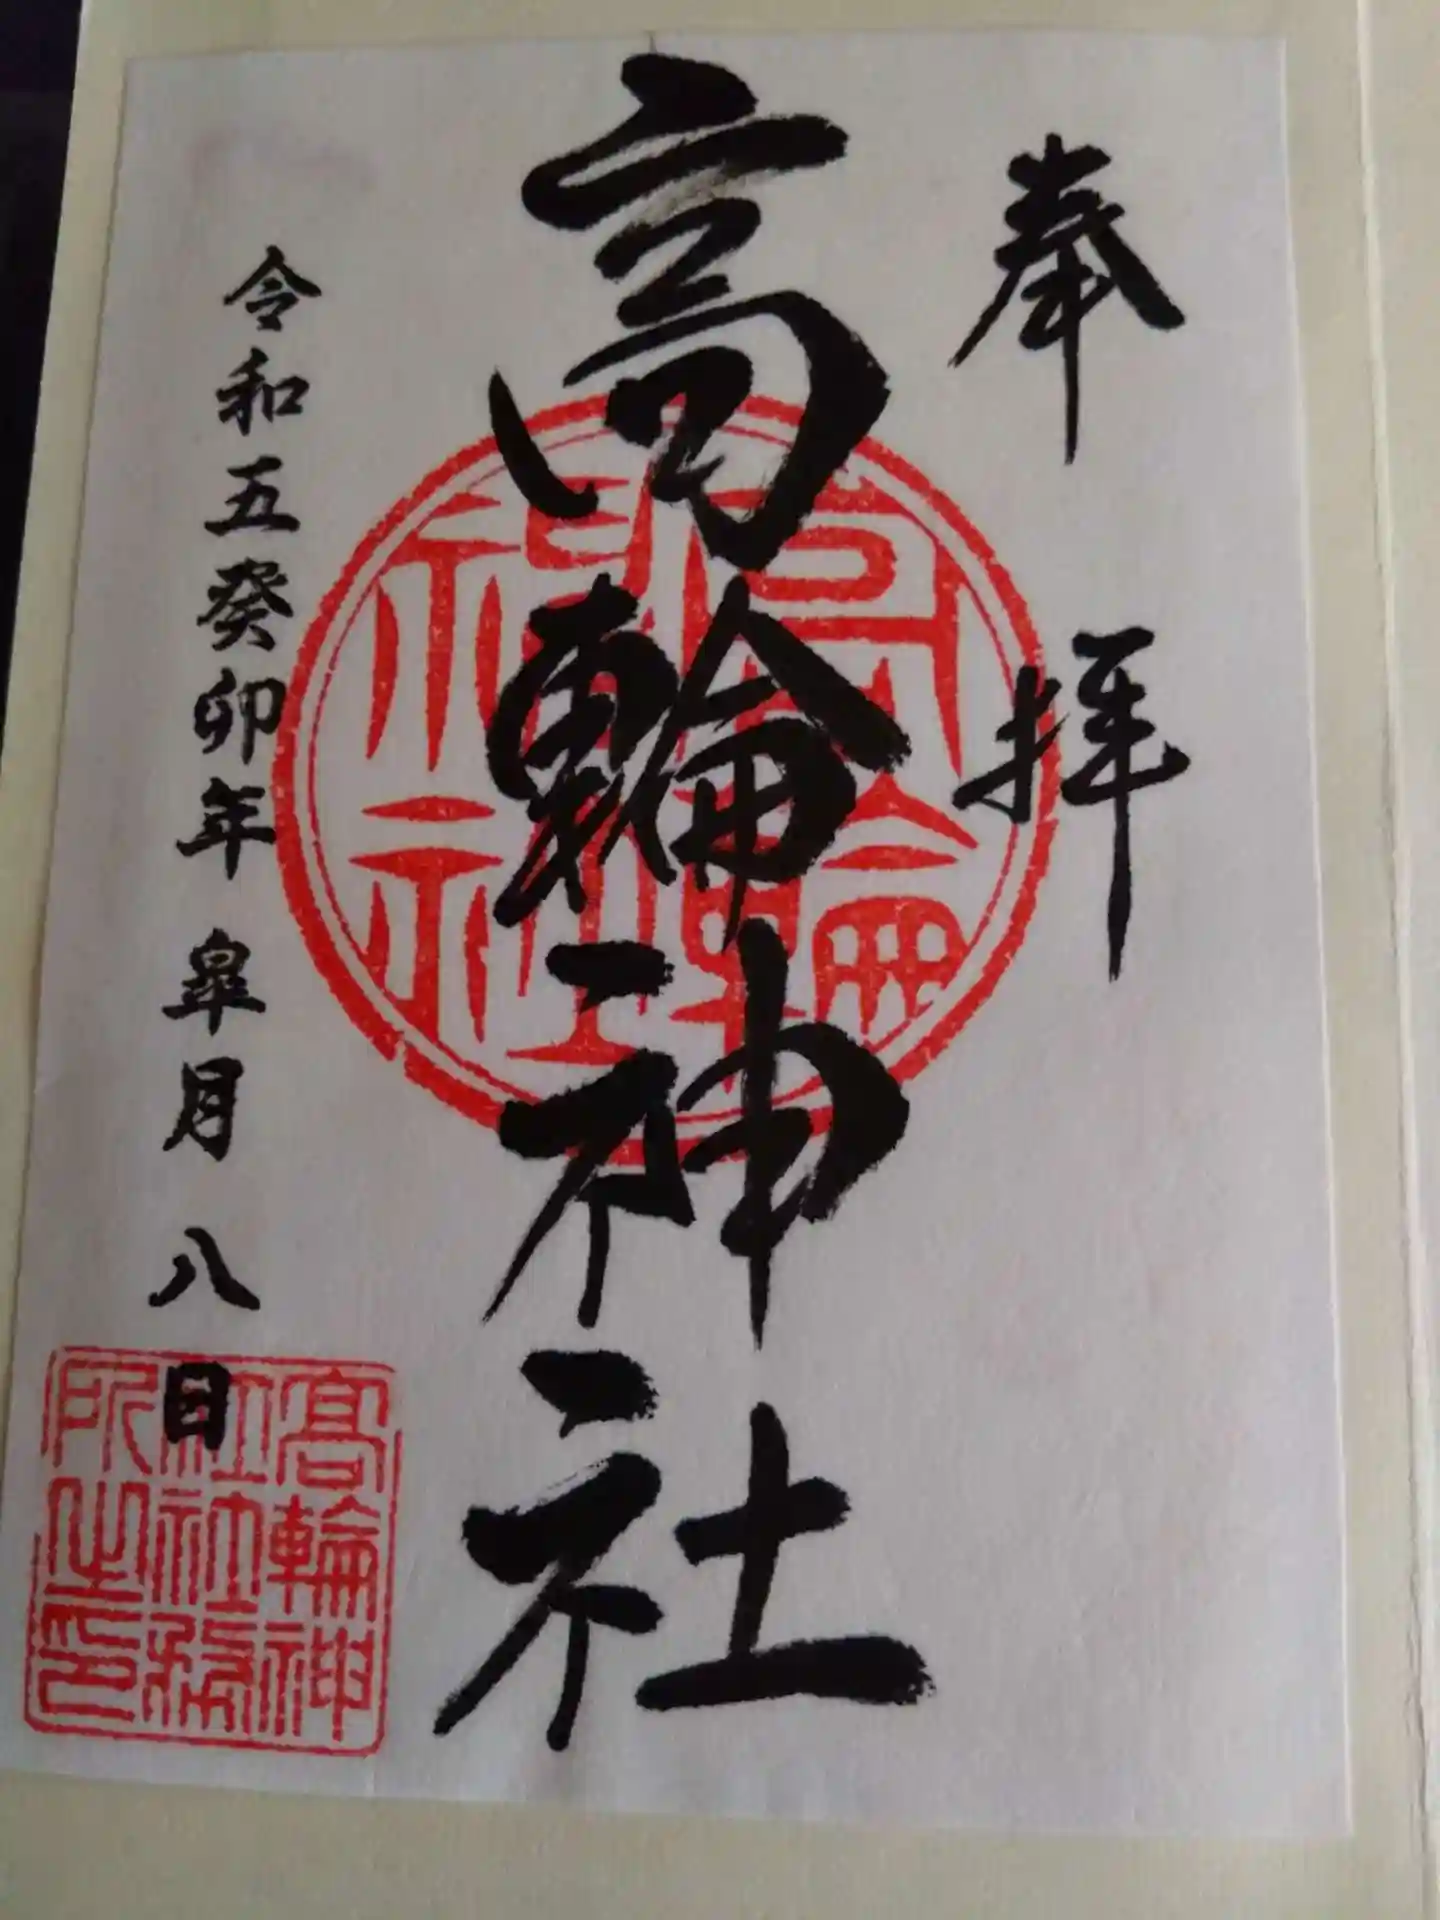 奉拝
高輪神社
令和五癸卯年 皐月 八日
高輪神社
高輪神
社社務
所之印